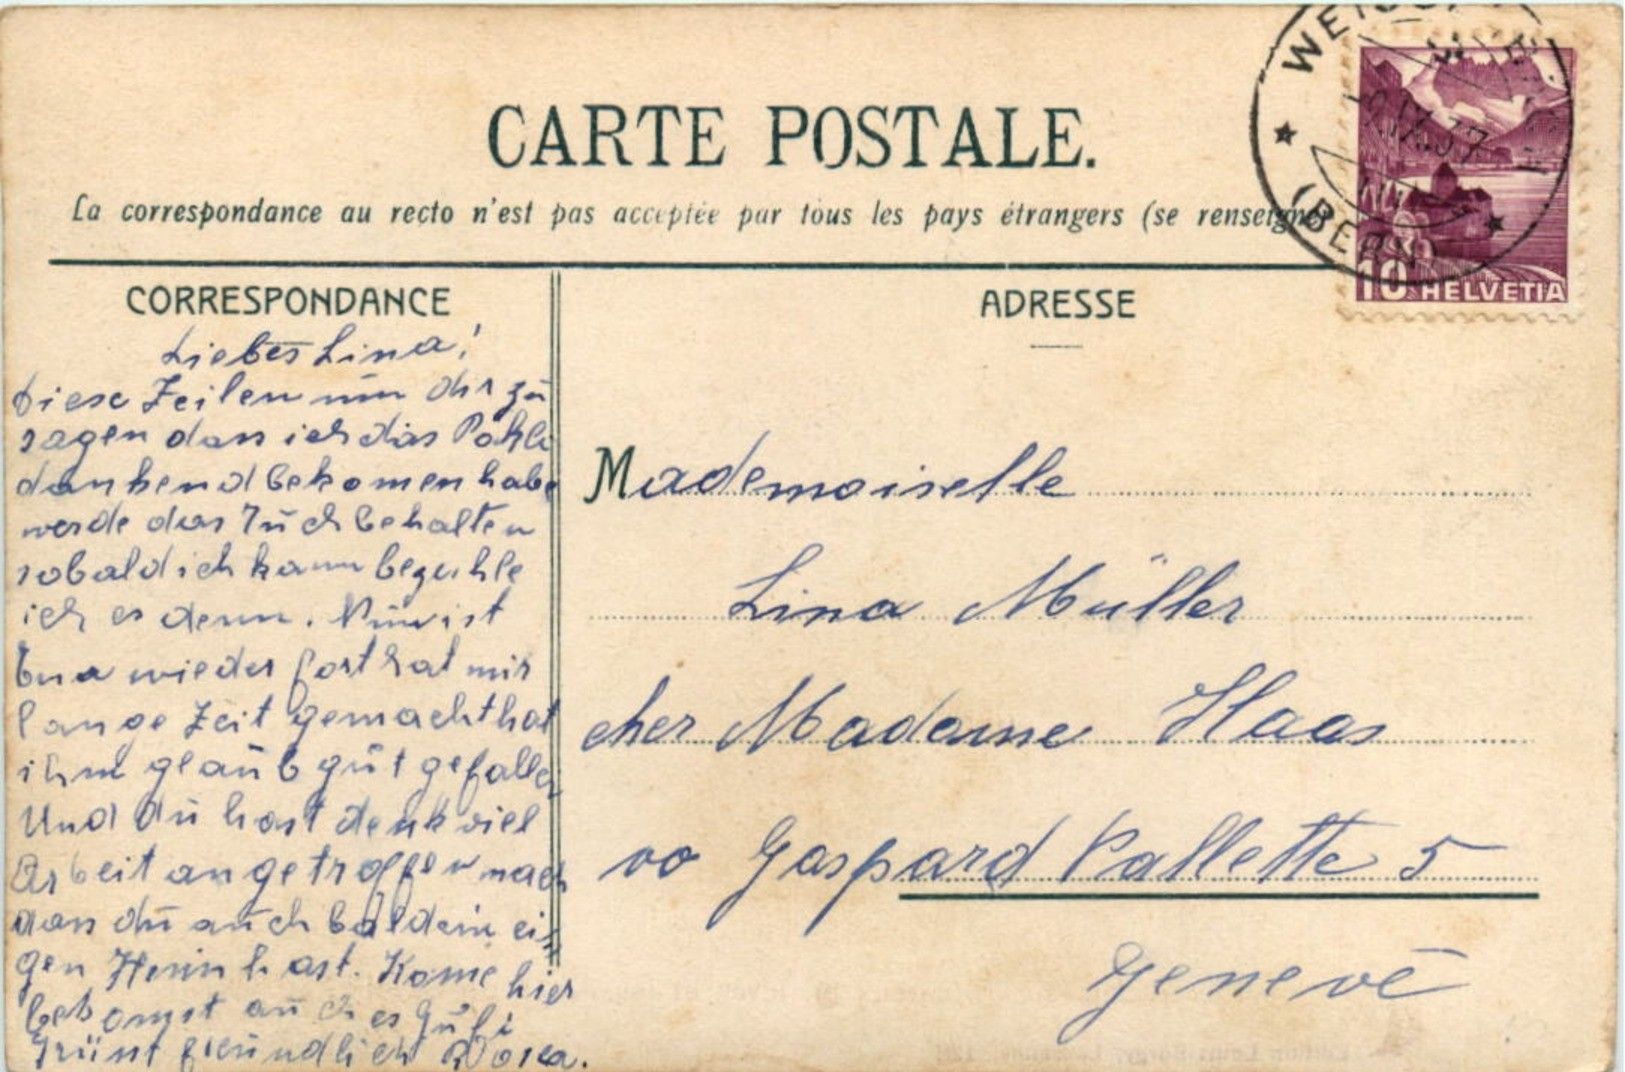 CARTE POSTALE.
La correspondance au recto n'est pas acceptée par tous les pays étrangers (se renseigner
(BERN)
10 HELVETIA
CORRESPONDANCE
Liebes Lina!
Diese Zeilen um dir zu
sagen dass ich das Päkli
dankend bekomen habe
werde das Tuch behalten
sobald ich kann bezahle
ich es denn. Nun ist
wieder fort hat mir
lange Zeit gemacht hat
ihm glaub gut gefallen
Und du hast denk viel
Arbeit angetroffen mach
dass du auch bald dein ei-
gen Heim hast. Kome hier
bekomst auch es
Grüsst freundlich Rosea.
ADRESSE
Mademoiselle
Lina Müller
cher Madame Haas
Gaspard Vallette 5
Genevè